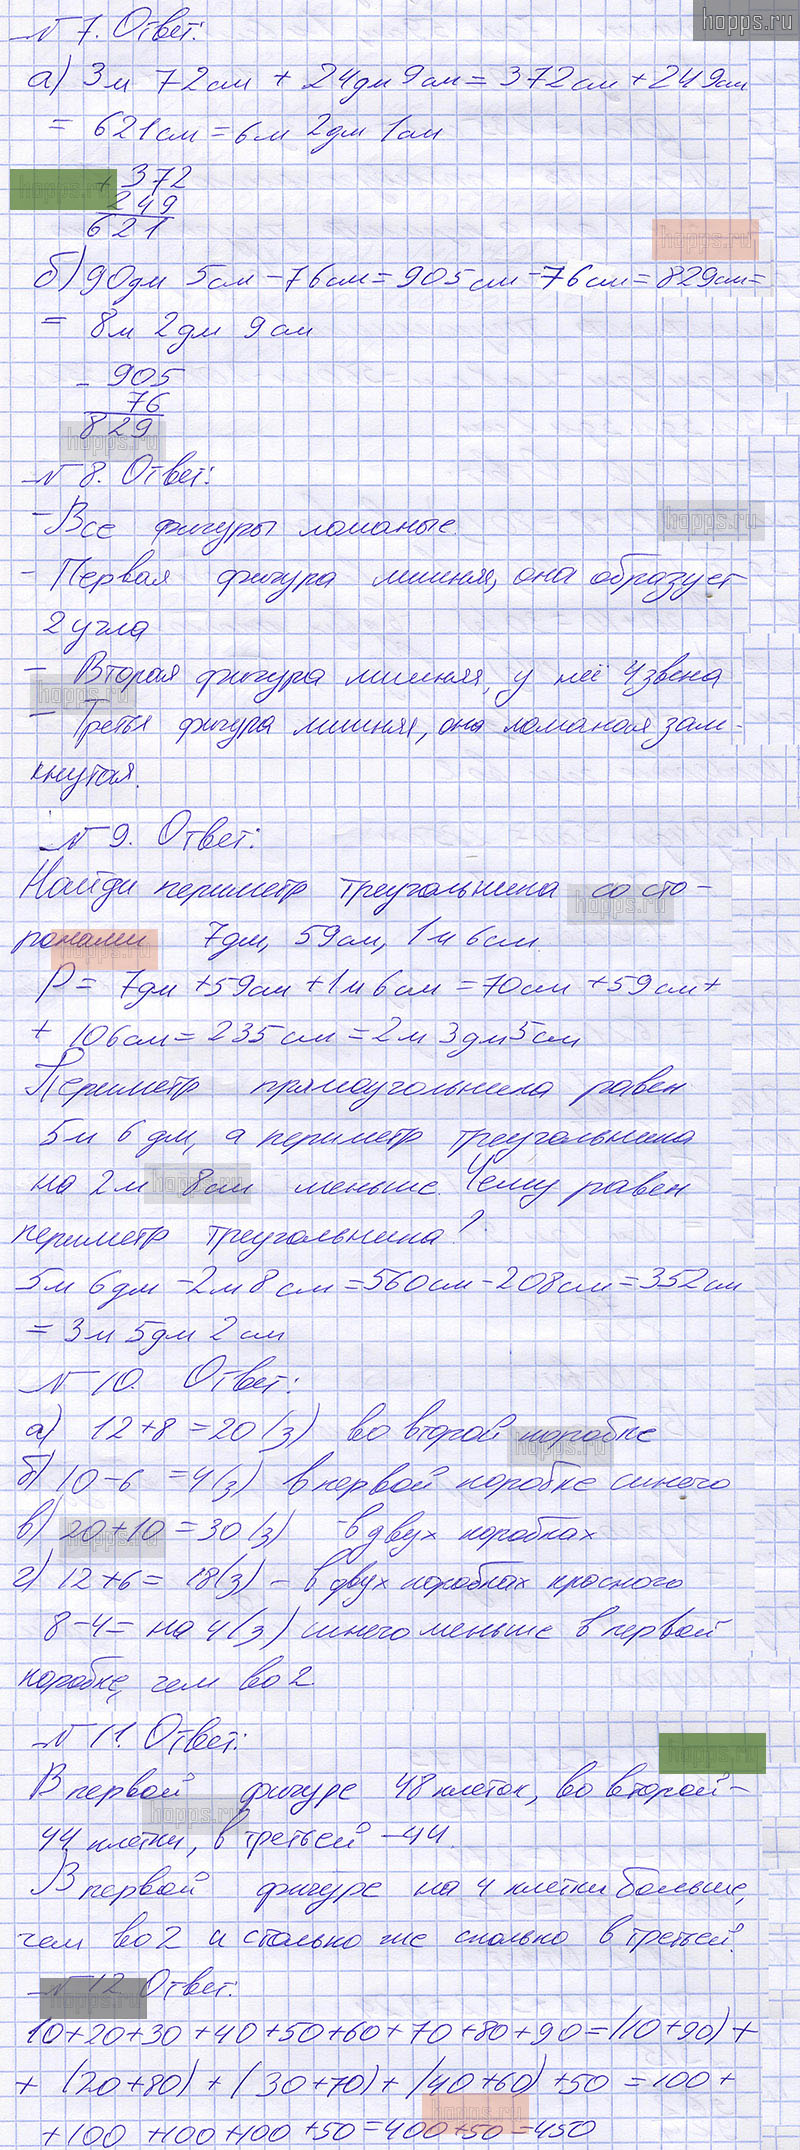 hopps.ru
№ 7. Ответ:
а) 3м 72см + 24дм 9см = 372см + 249см
= 621см = 6м 2дм 1см
+ 372
249
621
б) 90дм 5см - 76см = 905см - 76см = 829см =
= 8м 2дм 9см
- 905
76
829
№ 8. Ответ:
- Все фигуры ломаные.
- Первая фигура лишняя, она образует
2 угла
- Вторая фигура лишняя, у неё 4 звена
- Третья фигура лишняя, она ломаная зам-
кнутая.
№ 9. Ответ:
Найди периметр треугольника со сто-
ронами 7дм, 59см, 1м 6см.
P = 7дм + 59см + 1м 6см = 70см + 59см +
+ 106см = 235см = 2м 3дм 5см
Периметр прямоугольника равен
5м 6дм, а периметр треугольника
на 2м 8см меньше. Чему равен
периметр треугольника?
5м 6дм - 2м 8см = 560см - 208см = 352см
= 3м 5дм 2см
№ 10. Ответ:
а) 12+8 = 20 (з) во второй коробке
б) 10-6 = 4 (з) в первой коробке синего
в) 20+10 = 30 (з) - в двух коробках
г) 12+6 = 18 (з) - в двух коробках красного
8-4 = на 4 (з) синего меньше в первой
коробке, чем во 2.
№ 11. Ответ:
В первой фигуре 48 клеток, во второй -
44 клетки, в третьей - 44.
В первой фигуре на 4 клетки больше,
чем во 2 и столько же сколько в третьей.
№ 12 Ответ:
10+20+30+40+50+60+70+80+90 = (10+90) +
+ (20+80) + (30+70) + (40+60) + 50 = 100 +
+ 100 + 100 + 100 + 50 = 400 + 50 = 450